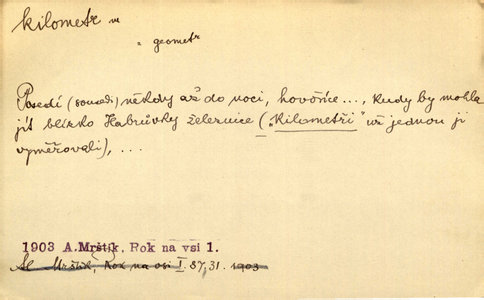 kilometr m
„ geometr
Posedí (sousedi) někdy až do noci, hovoříce..., kudy by mohla
jít blízko Habrůvky železnice („Kilometři“ už jednou ji
vyměřovali), ...
1903 A. Mrštík, Rok na vsi 1.
Al. Mrštík, Rok na vsi I. 87, 31. 1903